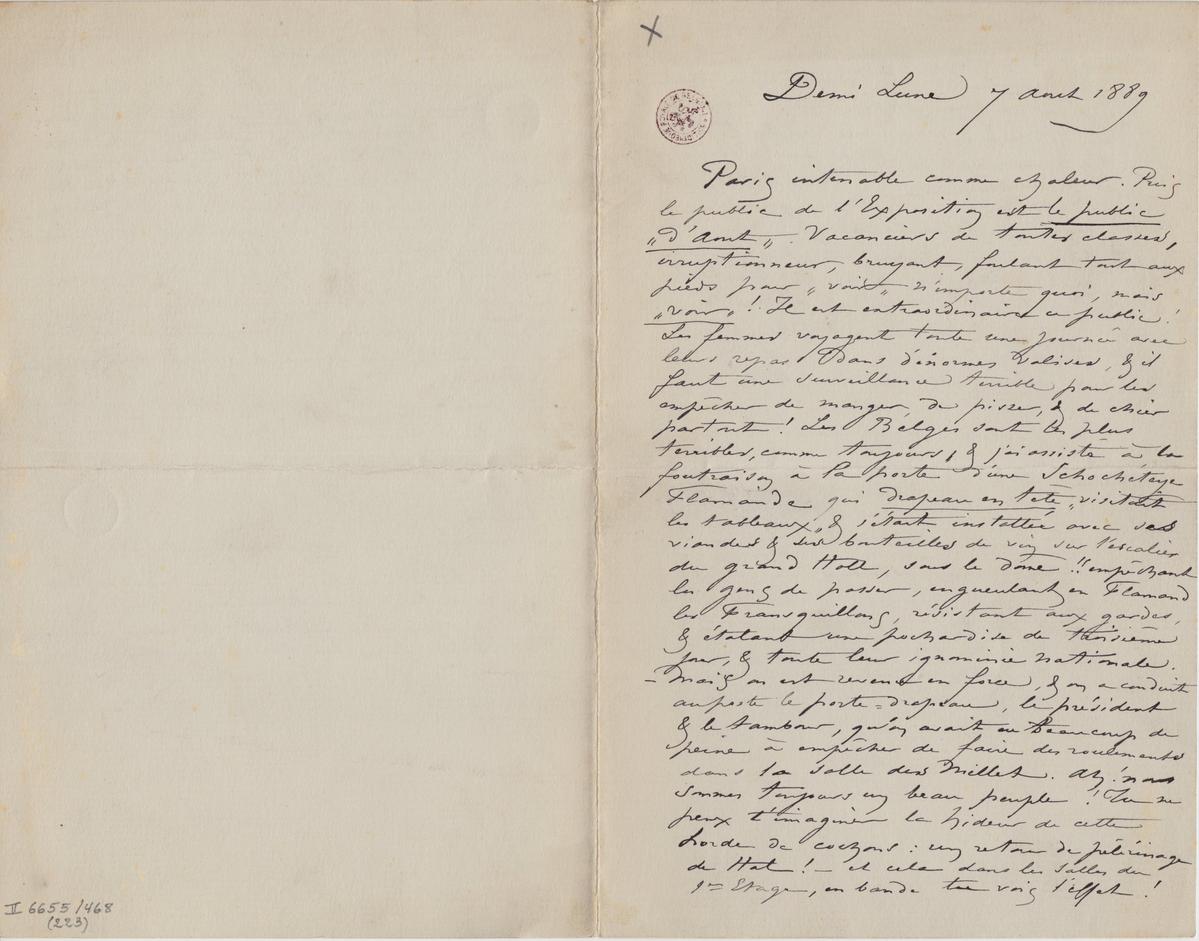 Demi Lune 7 aout 1889
Paris intenable comme chaleur. Puis
le public de l'Exposition est le public
„d'Aout„. Vacanciers de toutes classes,
irruptionneur, bruyant, foulant tout aux
pieds pour „voir„ n'importe quoi, mais
„voir„! Il est extraordinaire ce public!
Les femmes voyagent toute une journée avec
leurs repas dans d'énormes valises, & il
faut une surveillance terrible pour les
empêcher de manger, de pisser, & de chier
partout! Les Belges sont les plus
terribles, comme toujours, & j'ai assisté à la
foutraison à la porte d'une Schochèteye
Flamande qui drapeau en tête „visitait
les tableaux„ & s'était installée avec ses
viandes & ses bouteilles de vin sur l'escalier
du grand Hall, sous le dôme!! empêchant
les gens de passer, engueulant en Flamand
les Fransquillons, résistant aux gardes,
& étalant une pochardise de troisième
jour, & toute leur ignominie nationale.
– Mais on est revenu en force, & on a conduit
au poste le porte=drapeau, le président
& le tambour, qu'on avait eu beaucoup de
peine à empêcher de faire des roulements
dans la salle des Millet. Ah! nous
sommes toujours un beau peuple! Tu ne
peux t'imaginer la hideur de cette
horde de cochons: un retour de pélérinage
de Hal! – et cela dans les salles du
1er Etage, en bande tu vois l'effet!
II 6655/468
(223)